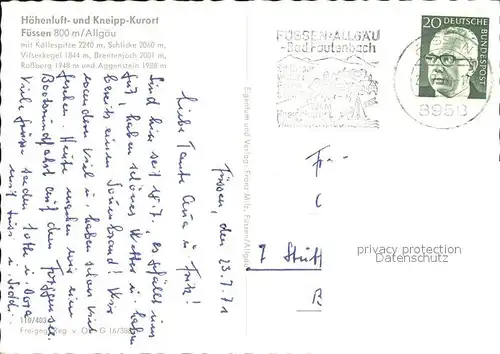 Höhenluft- und Kneipp-Kurort
Füssen 800 m/Allgäu
mit Köllespitze 2240 m, Schlicke 2060 m,
Vilserkegel 1844 m, Brentenjoch 2001 m,
Roßberg 1948 m und Aggenstein 1988 m
FÜSSEN-ALLGÄU
-Bad Faulenbach
20 DEUTSCHE
BUNDESPOST
8958
Eigentum und Verlag: Franz Milz, Füssen/Allgäu
Füssen, den 23.7.71
Liebe Tante Anna u. Fritz!
Sind hier seit 18.7., es gefällt uns
gut, haben schönes Wetter u. haben
bereits einen Sonnenbrand! Wir
wandern viel u. haben schon viel
gesehen. Heute machen wir eine
Bootsrundfahrt auf dem Forggensee.
Viele Grüsse senden
mit
Fr.
7 Stutt
privacy protection
Datenschutz
110/403
Freigeg. Reg v. Ob. G 16/38